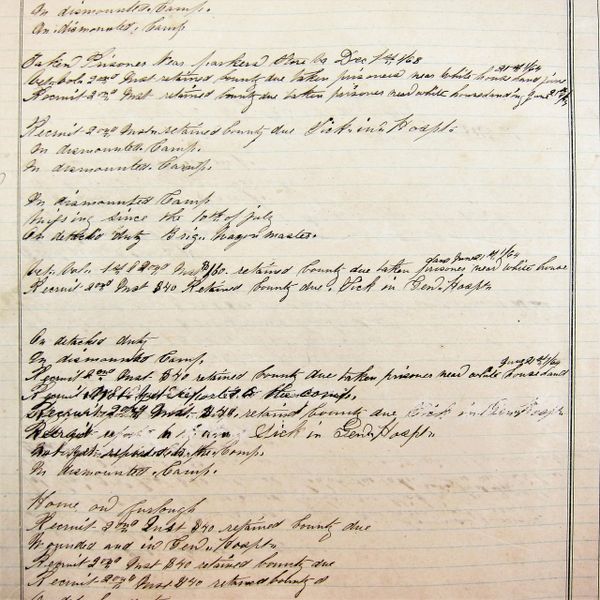 In dismounted Camp.
In dismounted Camp
Taken Prisoner Near Parkers Store Va Dec 1st
Vet. Vol. 2nd Inst retained bounty due taken prisoners near White house land june 21st 1/64
Recruit 2nd Inst retained bounty due taken prisoner near white house landing June
Recruit 2nd Inst retained bounty due Sick in Hospt.
In dismounted Camp.
In dismounted Camp.
In dismounted Camp
Missing since the 10th of july
On detached duty Brig. Wagon master.
Vet. Vol. 1st & 2nd Inst retained bounty due taken prisoner near white house land June 21st 1/64
Recruit 2nd Inst $40 Retained bounty due. Sick in Gen. Hospt.
On detached duty
In dismounted Camp.
Recruit 2nd Inst $40 retained bounty due taken prisoner near white house land June 21st 1/64
Recruit reported to the comp.
Recruit 2nd Inst $40 retained bounty due Sick in Gen. Hospt.
Sick in Gen. Hospt.
the Comp.
In dismounted Camp.
Home on furlough
Recruit 2nd Inst $40 retained bounty due
Wounded and in Gen. Hospt.
Recruit 2nd Inst $40 retained bounty due
Recruit 2nd Inst $40 retained bounty d